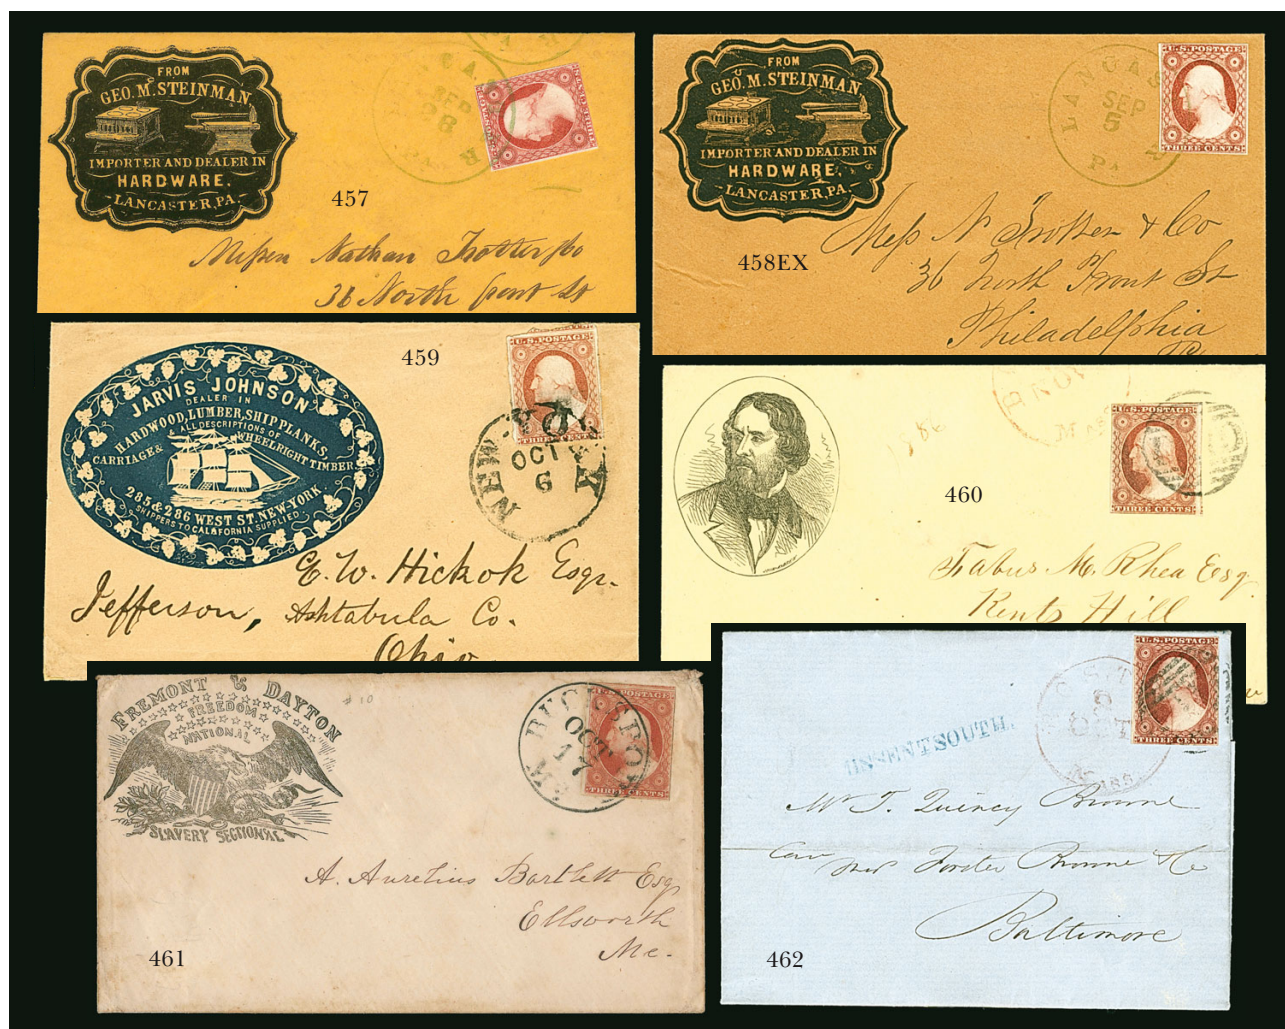 FROM
GEO. M. STEINMAN,
IMPORTER AND DEALER IN
HARDWARE,
LANCASTER, PA.
SEP
28
PA
457
Nathan Trotter & Co
36 North front St
FROM
GEO. M. STEINMAN,
IMPORTER AND DEALER IN
HARDWARE,
LANCASTER, PA.
LANCASTER
SEP
5
PA
U.S. POSTAGE
THREE CENTS
458EX
Mess N Trotter & Co
36 North Front St
Philadelphia
JARVIS JOHNSON
DEALER IN
HARDWOOD, LUMBER, SHIP PLANKS,
& ALL DESCRIPTIONS OF
CARRIAGE & WHEELRIGHT TIMBER
285 & 286 WEST ST. NEW-YORK
SHIPPERS TO CALIFORNIA SUPPLIED
459
U.S. POSTAGE
THREE CENTS
NEW-YORK
OCT
6
E. W. Hickok Esqr.
Jefferson, Ashtabula Co.
Ohio
460
U.S. POSTAGE
THREE CENTS
M. Rhea Esq
Kents Hill
FREMONT & DAYTON
FREEDOM
NATIONAL
SLAVERY SECTIONAL
# 10
OCT
17
U.S. POSTAGE
THREE CENTS
A. Aurelius Bartlett Esq
Ellsworth
Me.
461
U.S. POSTAGE
THREE CENTS
OCT
UNSENT SOUTH.
Mr T. Quincy Browne
Baltimore
462